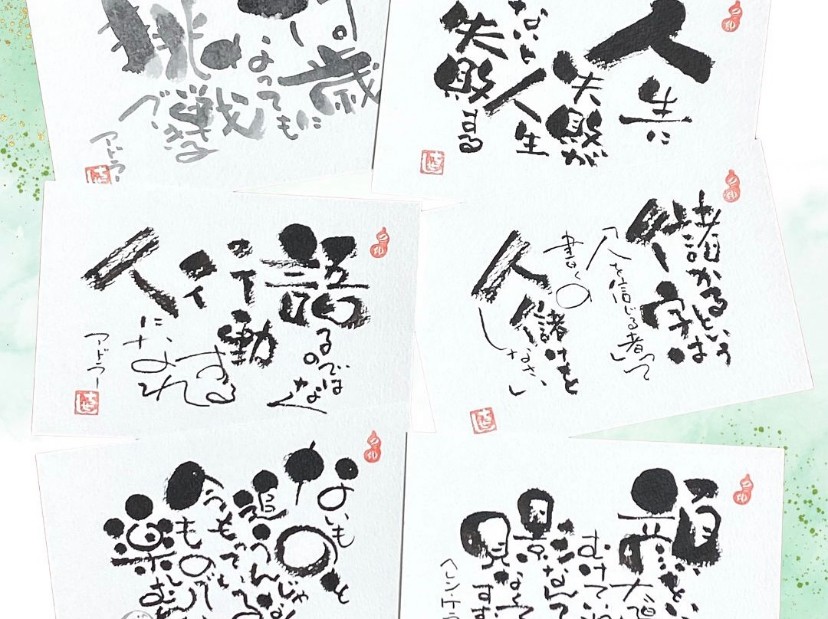 歳に
なっても
挑戦
できる
アドラー
人生に
失敗が
ないと
人生
失敗する
語るのではなく
行動する
人になれ
アドラー
儲かるという
字は
「人を信じる者」って
書くの
人儲けを
しなさい」
ないもの
追うんじゃな
今もってい
もの
楽しむ
顔
むけて
影なんて
見なくて
ヘレン・ケラ